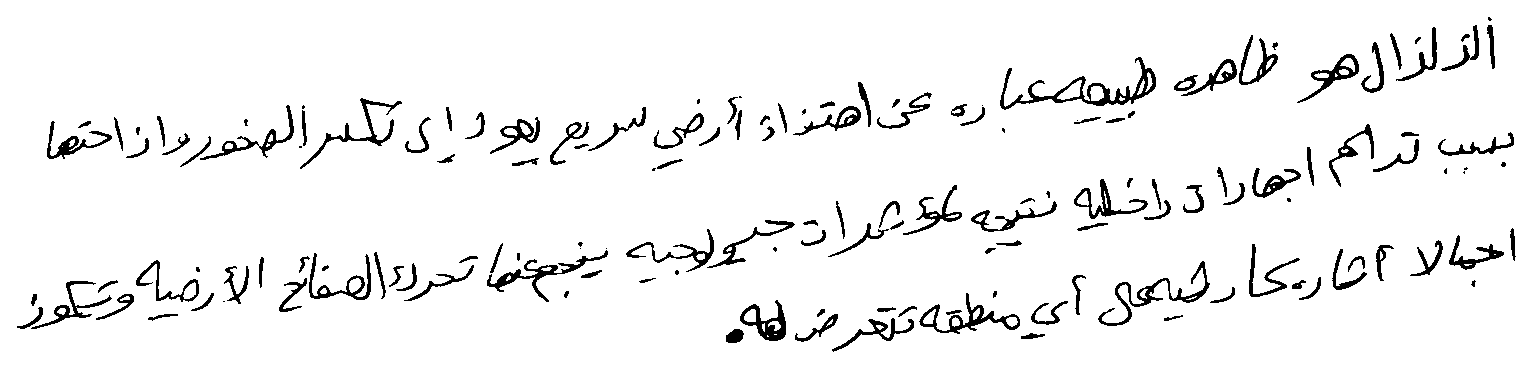 الزلزال هو ظاهره طبيعيه عباره عن اهتزاز أرضي سريع يعود إلى تكسر الصخور وازاحتها
بسبب تراكم اجهادات داخليه نتيجه لمؤثرات جيولوجيه ينجم عنها تحرك الصفائح الأرضيه وتكون
اجمالا آثاره كارثيه على أي منطقه تتعرض له.